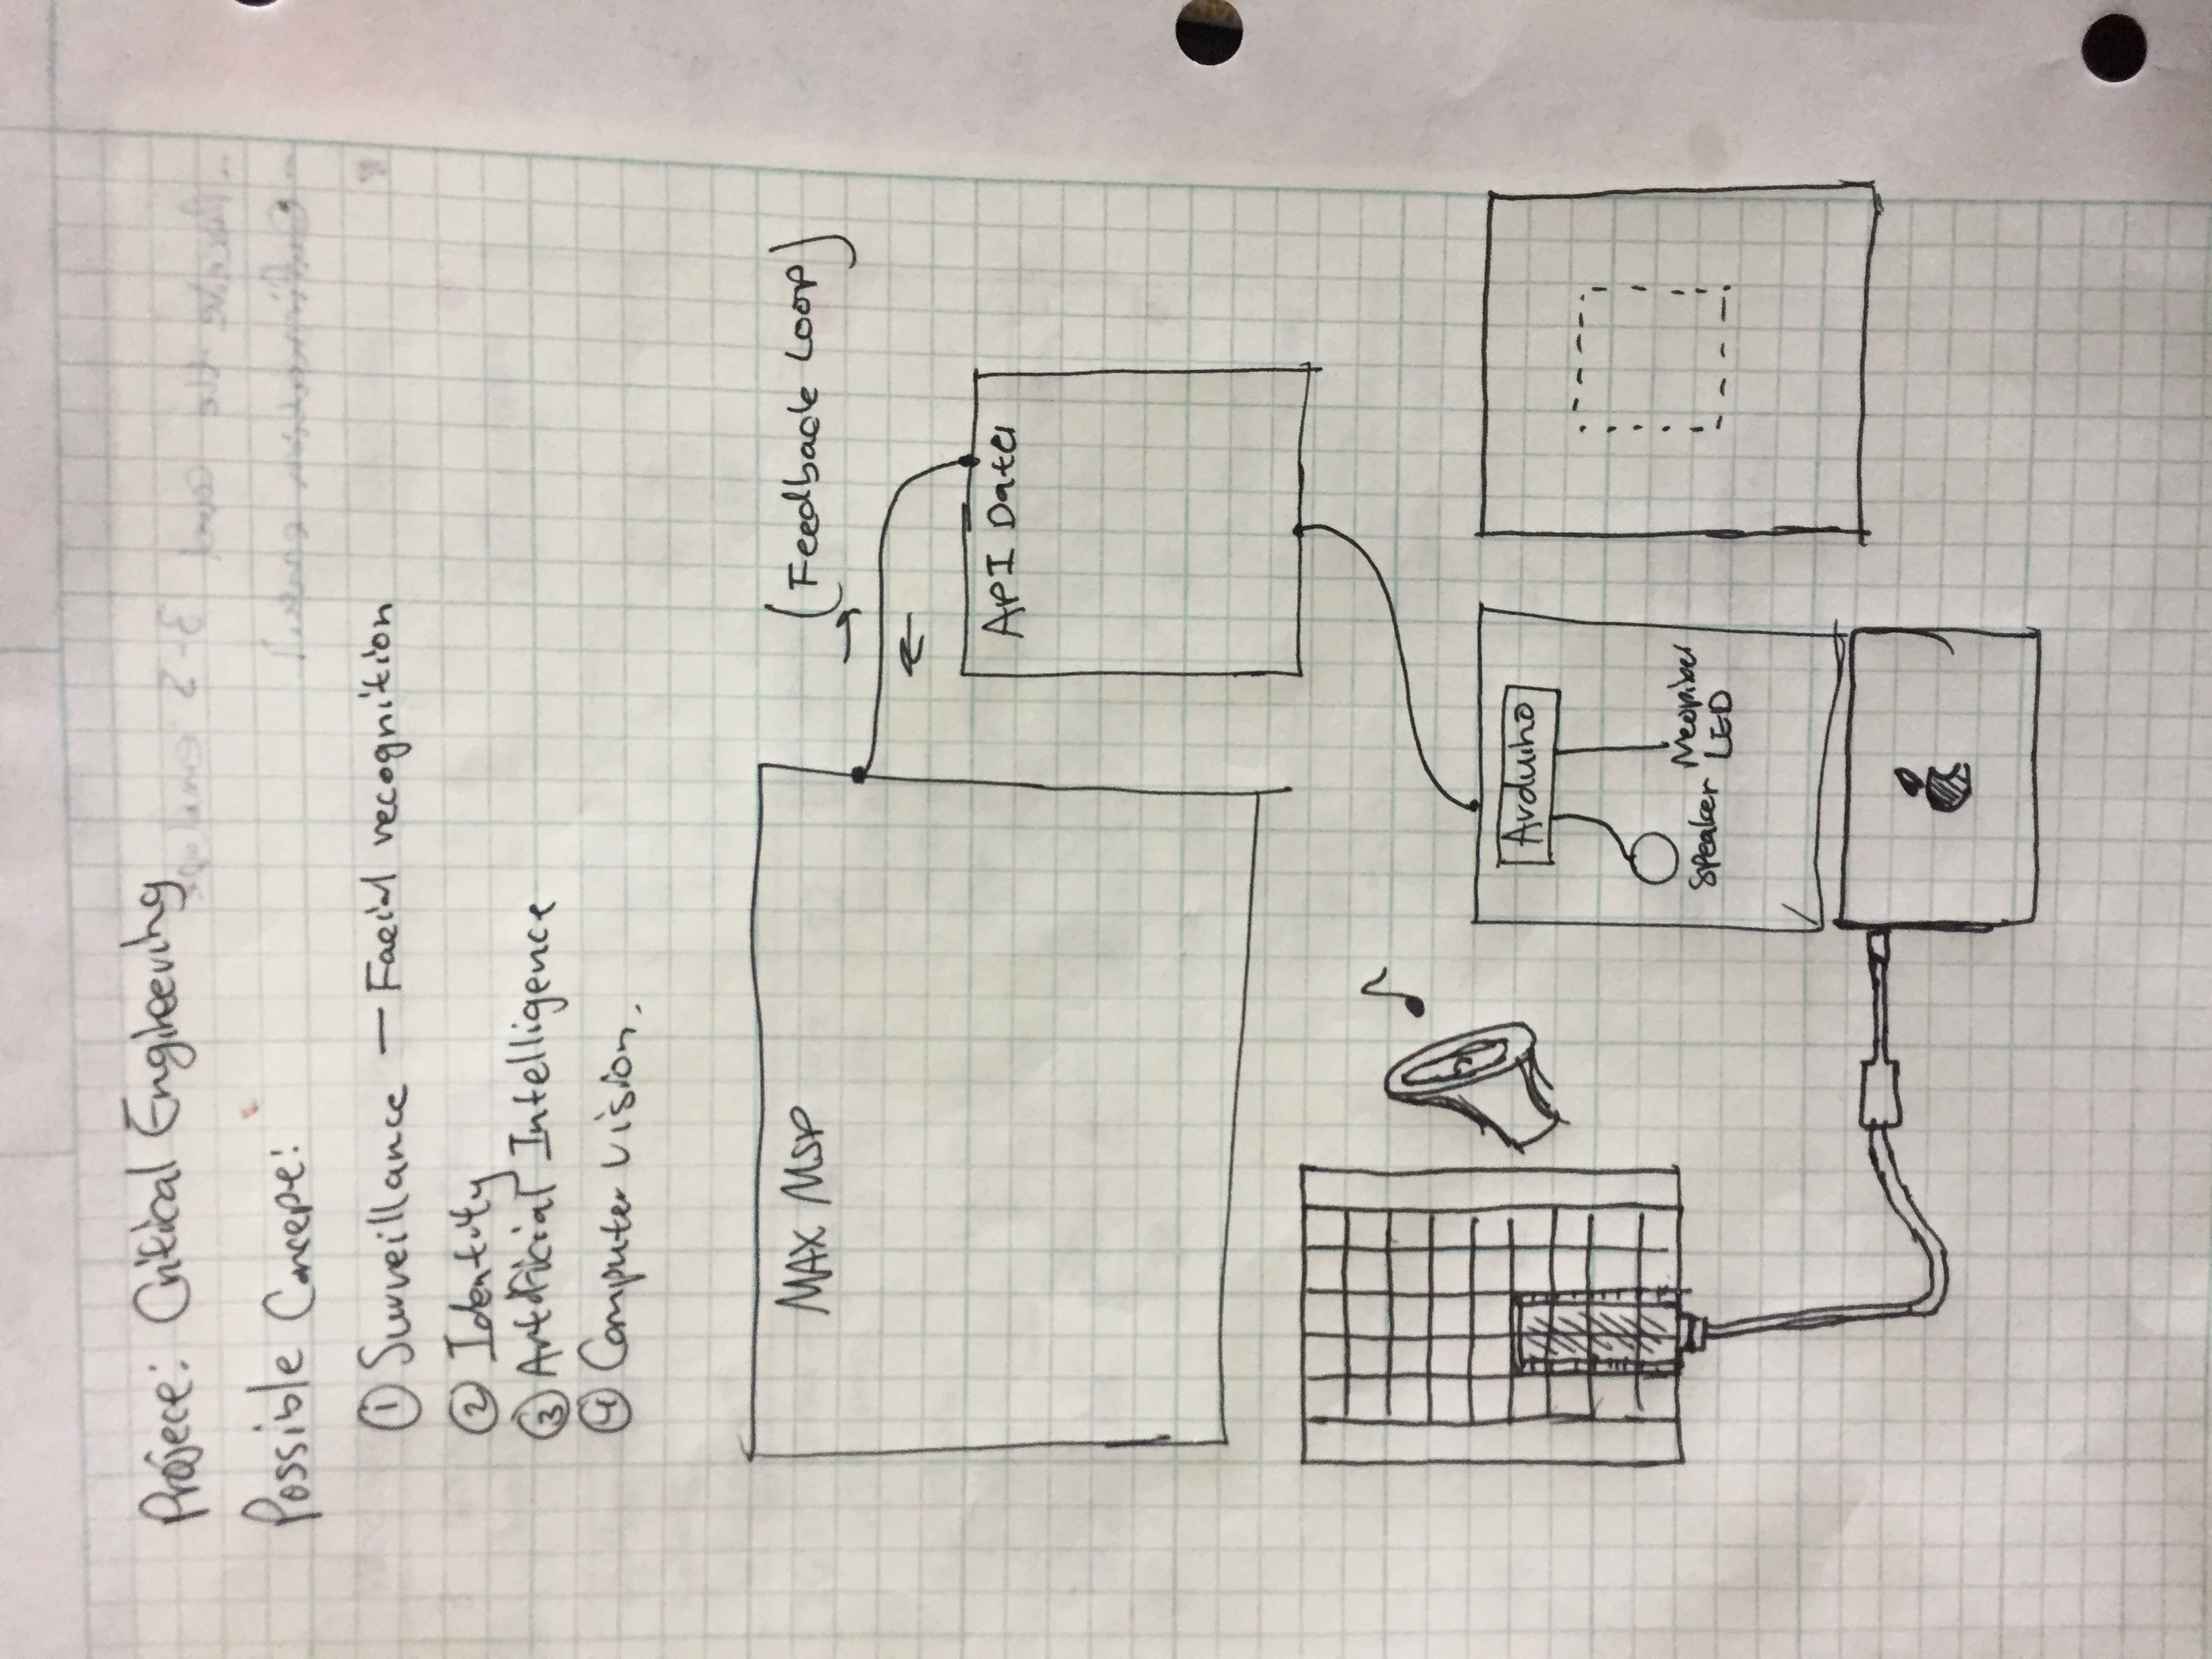 Project: Critical Engineering
Possible Concept:
① Surveillance — Facial recognition
② Identity
③ Artificial Intelligence
④ Computer vision.
MAX MSP
(Feedback Loop)
API Data
Arduino
Speaker
Neopixel
LED